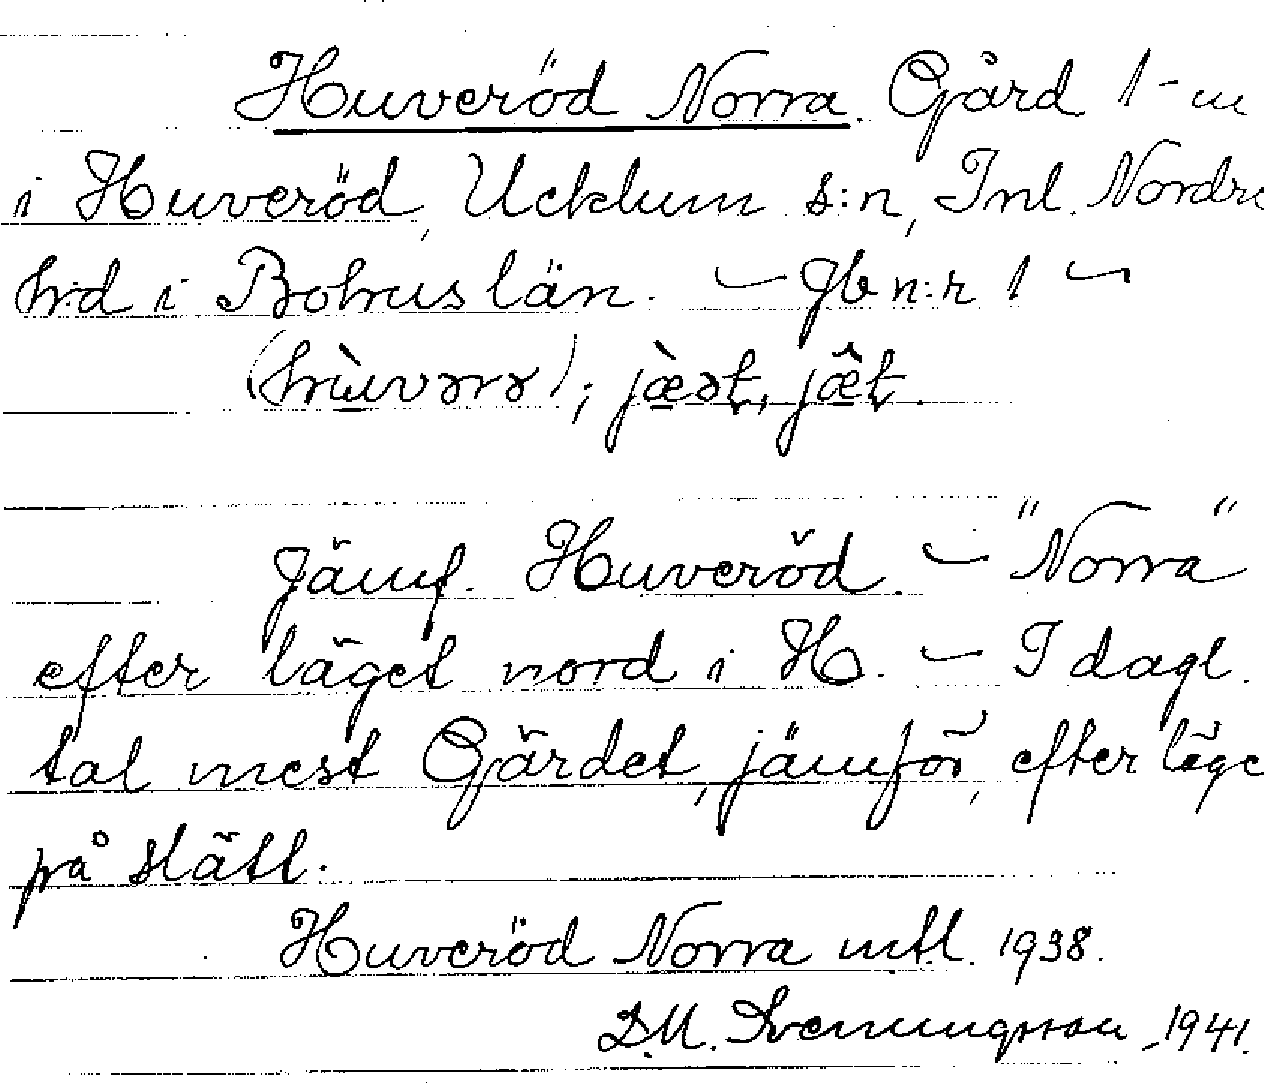 Huveröd Norra. Gård 1-m
i Huveröd, Ucklum s:n, Inl. Nordre
h:d i Bohuslän. - Jb n:r 1 -
(hùvərə); jæ̀ət, jæ̂t.
Jämf. Huveröd. - "Norra"
efter läget nord i H. - I dagl.
tal mest Gärdet, jämför, efter läge
på slätt.
Huveröd Norra mtl. 1938.
D.M. Svenungsson 1941.